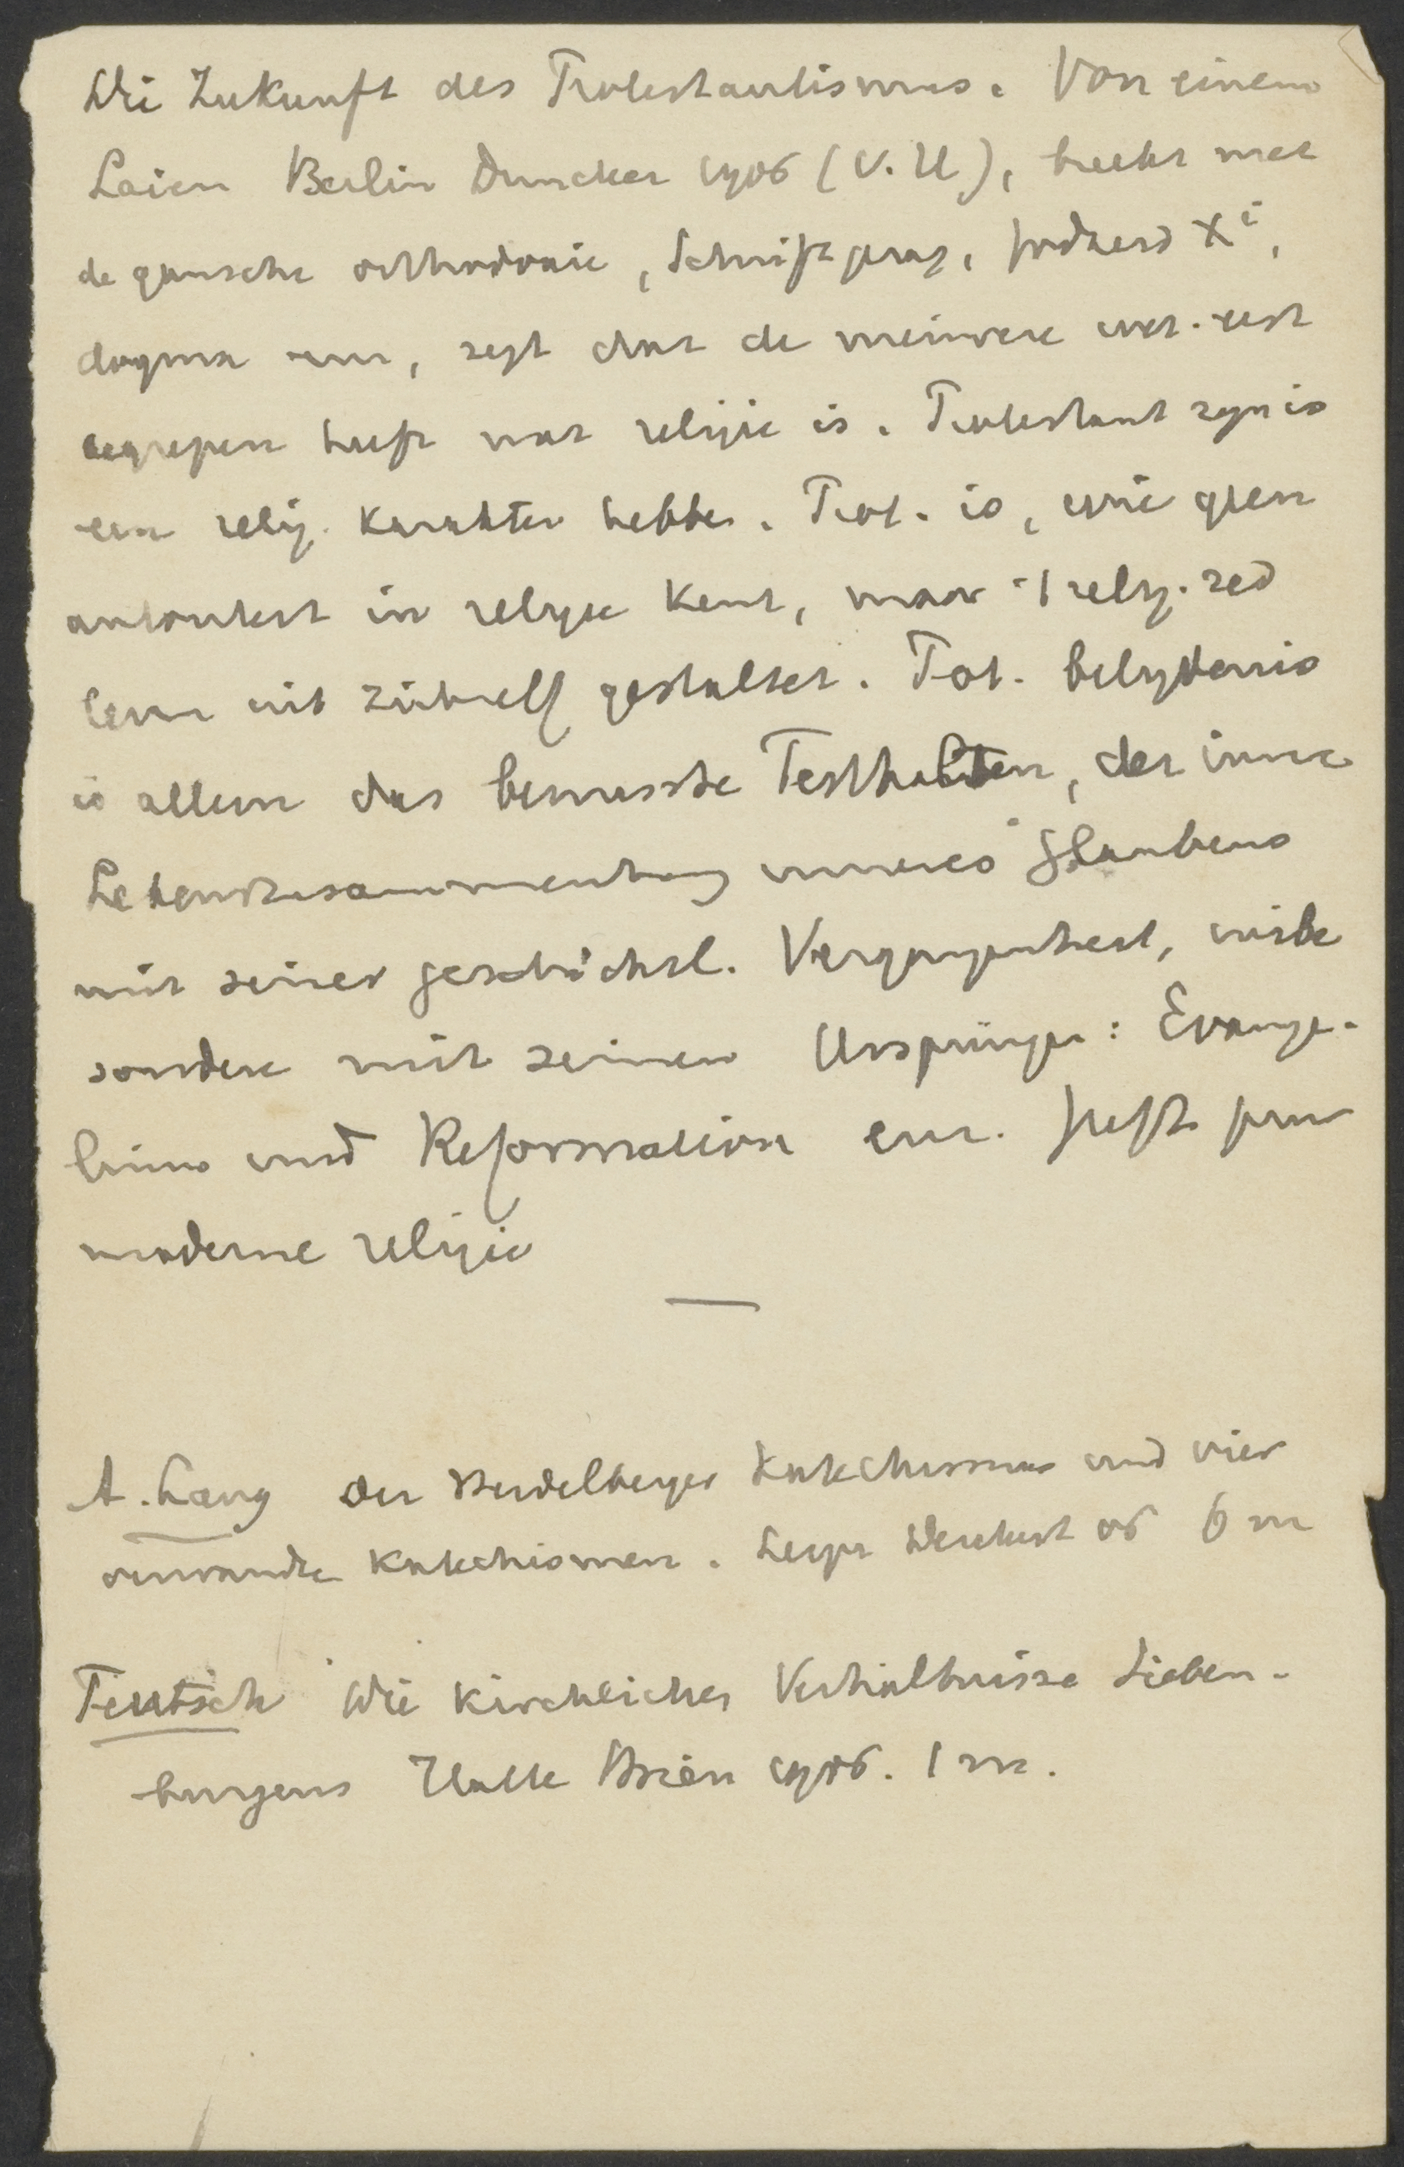 Die Zukunft des Protestantismus. Von einem
Laien Berlin Duncker 1906 (V. U), breekt met
de gansche orthodoxie, Schriftgezag, godheid Xi,
dogma enz, zegt dat de meinere eerst
begrepen heeft wat religie is. Protestant zyn is
een relig. karakter hebben. Prot. is, wie geen
autoriteit in religie kent, maar 't relig. zed
leven uit zichzelf gestaltet. Prot. belydenis
is alleen das bewusste Festhalten, der innre
Lebenszusammenhang unseres Glaubens
mit seiner geschichtl. Vergangenheit, insbe
sondere mit seinen Ursprüngen: Evange-
lium und Reformation enz. geeft
moderne religie
A. Lang Der Heidelberger Katechismus und vier
verwandte Katechismen. Leipz Deichert 06 6 m
Teutsch Die kirchlichen Verhältnisse Sieben-
burgens Halle 1906. 1 m.